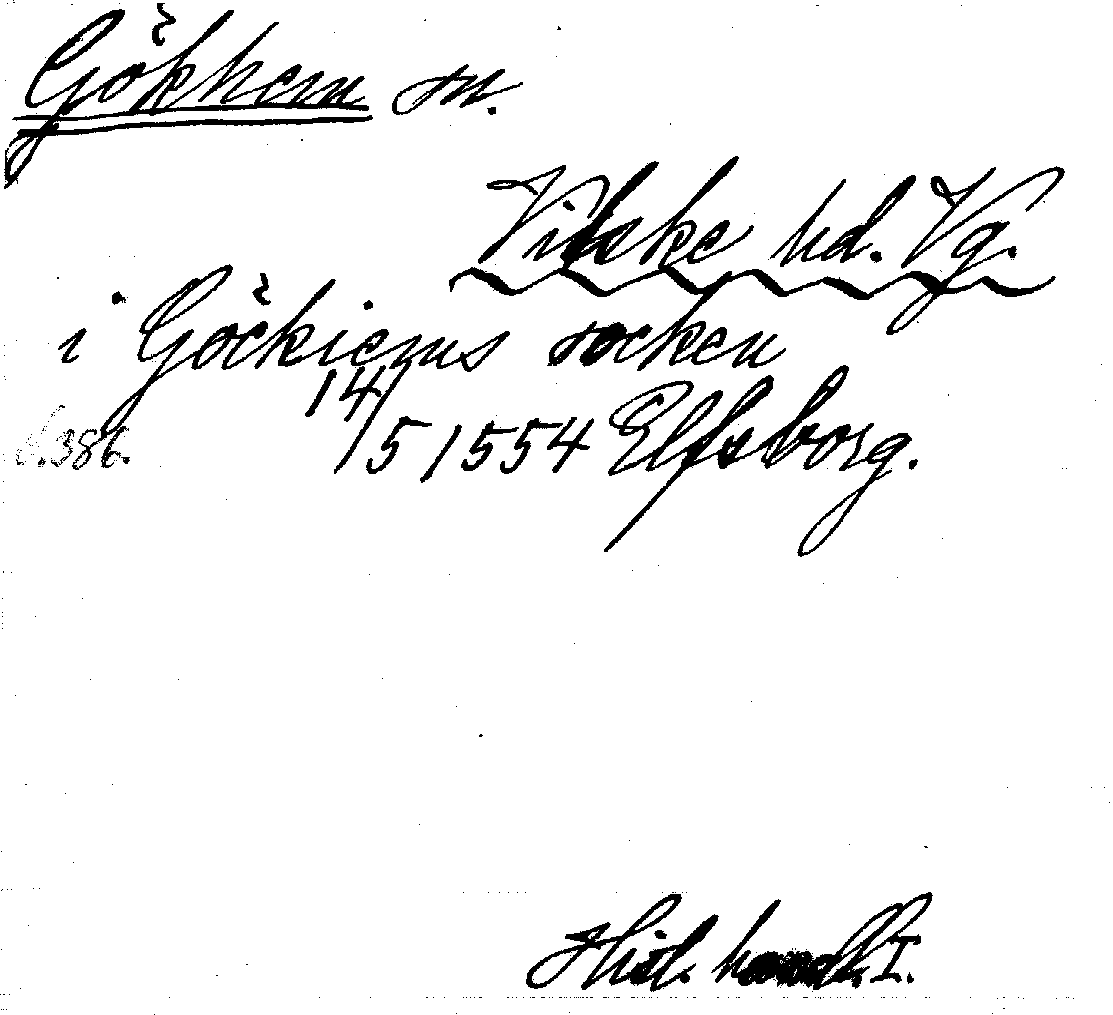 Gökhem sn.
Vilske hd. Vg.
i Göckiems socken
s. 386. 14/5 1554 Elfsborg.
Hist. handl. I.